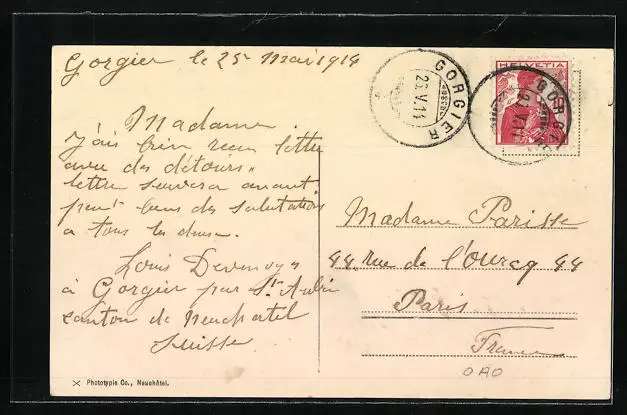 Gorgier le 25 Mai 1914
GORGIER
23.V.14
HELVETIA
GORGIER
Madame.
J'ais bien recu lettre
avec des détours.
lettre suivera avant
bien des salutations
a tous les deux.
Louis Devenoges
à Gorgier par St-Aubin
canton de Neuchatel
Suisse
Madame Parisse
44. rue de l'Ourcq 44
Paris
France
OAO
X Phototypie Co., Neuchâtel.